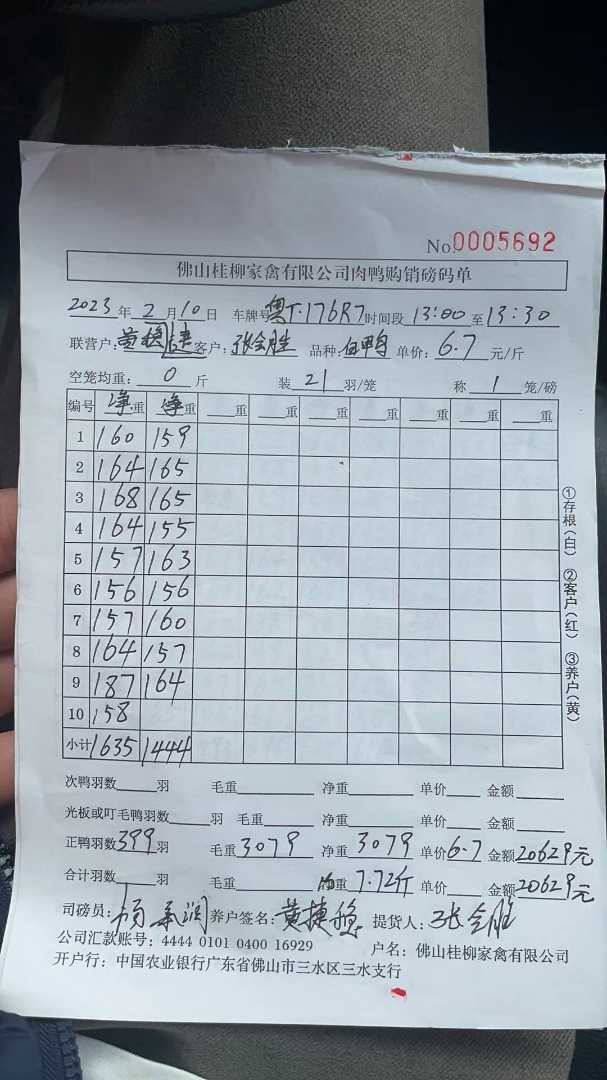 No.0005692
佛山桂柳家禽有限公司肉鸭购销磅码单
2023年2月10日 车牌号粤T·176R7时间段13:00至13:30
联营户: 黄 捷 客户: 张会胜 品种: 白鸭 单价: 6.7 元/斤
空笼均重: 0 斤 装 21 羽/笼 称 1 笼/磅
编号 净重 净重 重 重 重 重 重 重 重
1 160 159
2 164 165
3 168 165
4 164 155
5 157 163
6 156 156
7 157 160
8 164 157
9 187 164
10 158
小计 1635 1444
①存根(白) ②客户(红) ③养户(黄)
次鸭羽数 羽 毛重 净重 单价 金额
光板或叮毛鸭羽数 羽 毛重 净重 单价 金额
正鸭羽数399羽 毛重3079 净重3079 单价6.7 金额20629元
合计羽数 羽 毛重 均重7.72斤 单价 金额20629元
司磅员: 杨 润 养户签名: 黄捷 提货人: 张会胜
公司汇款账号: 4444 0101 0400 16929 户名: 佛山桂柳家禽有限公司
开户行: 中国农业银行广东省佛山市三水区三水支行